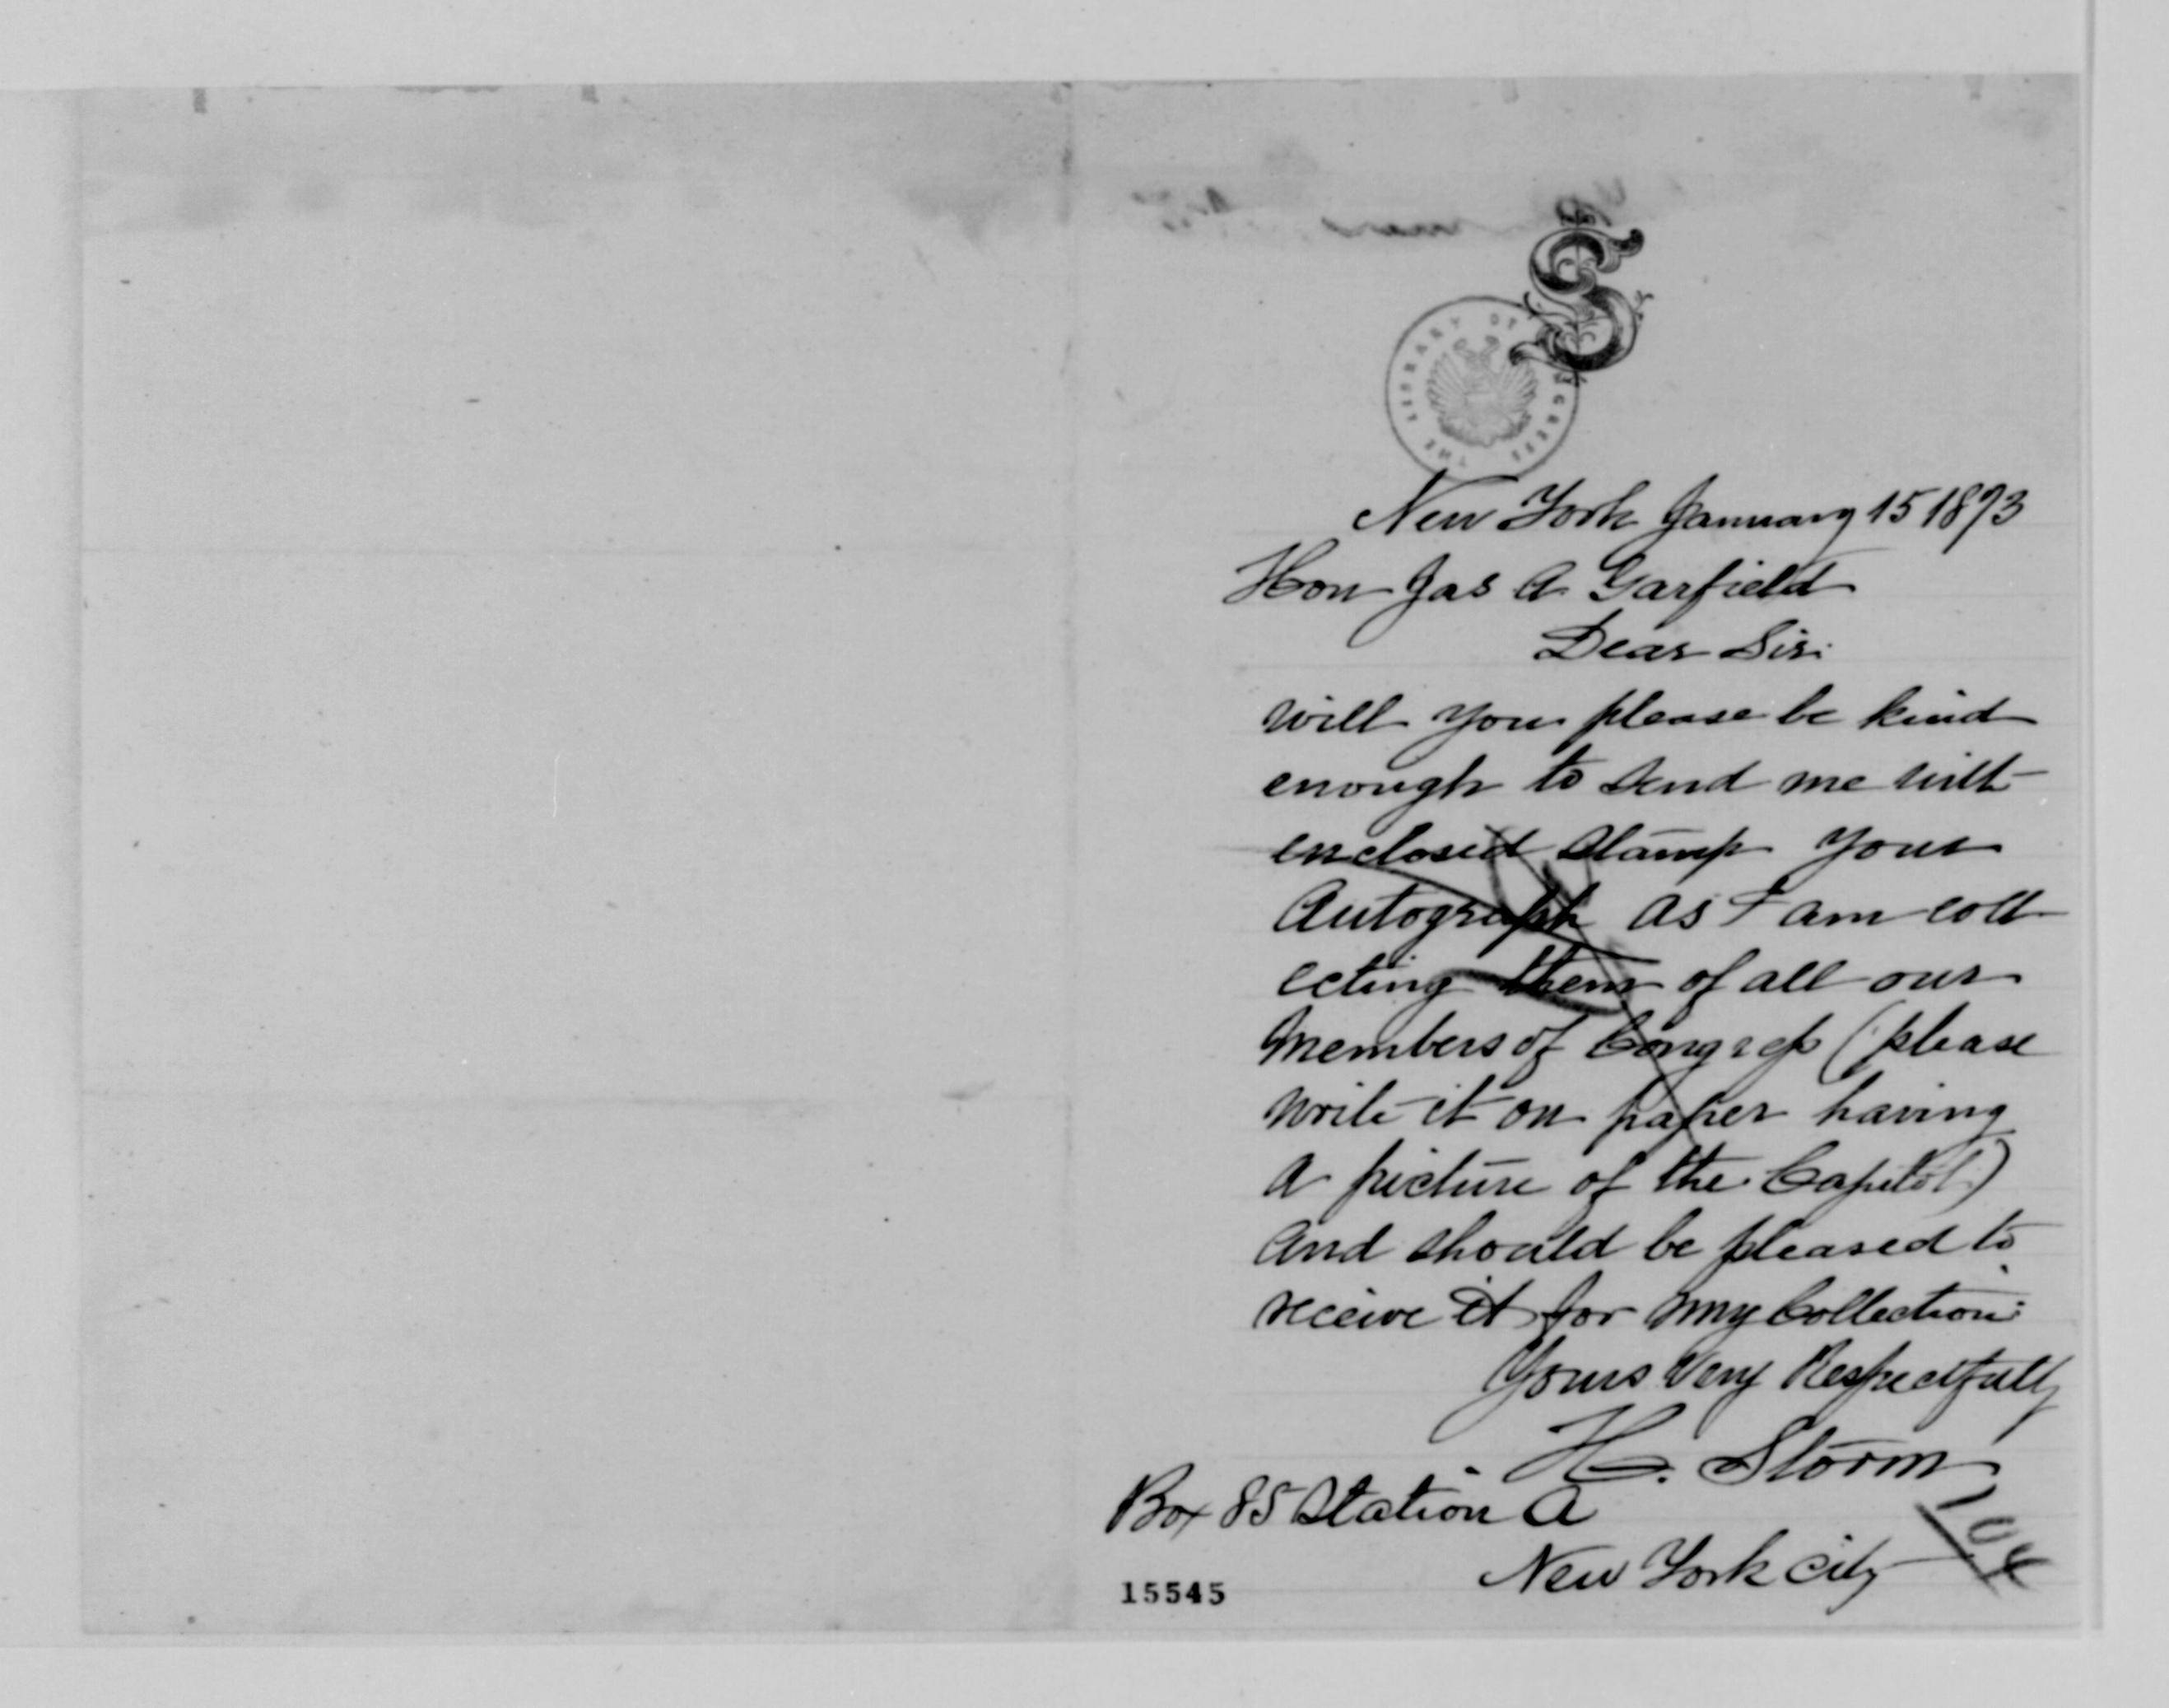 S
THE LIBRARY OF CONGRESS
New York January 15 1873
Hon Jas A. Garfield
Dear Sir:
will you please be kind
enough to send me with
enclosed stamp your
Autograph as I am coll
ecting them of all our
Members of Congress (please
write it on paper having
a picture of the Capitol)
and should be pleased to
receive it for my Collection.
Yours Very Respectfully
H. Storm
Box 85 Station A
New York City
15545